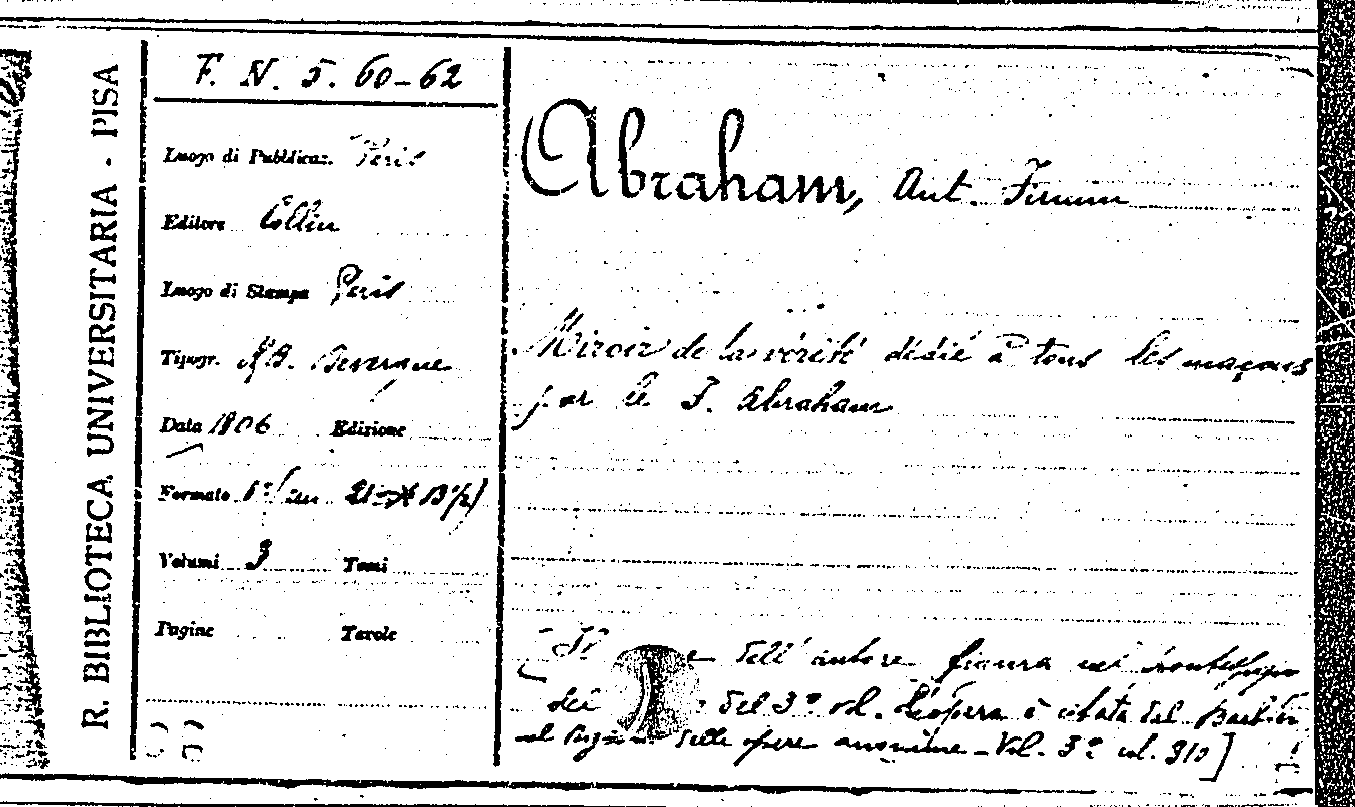 R. BIBLIOTECA UNIVERSITARIA - PISA
F. N. 5. 60-62
Luogo di Pubblicaz. Paris
Editore Collin
Luogo di Stampa Paris
Tipogr.
Data 1806 Edizione
Formato
Volumi 3 Tomi
Pagine Tavole
Abraham, Ant. Firmin
Miroir de la vérité dédié à tous les maçons
par le F. Abraham
dell' autore figura nel frontespizio
dei del 3º vol. L'opera è citata dal Barbier
delle opere anonime - Vol. 3º col. 310]